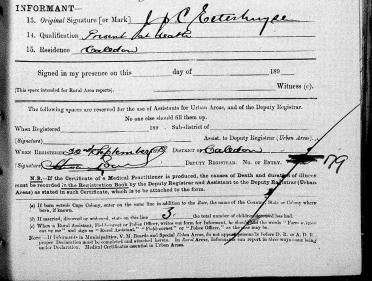 INFORMANT—
13. Original Signature [or Mark] J P C Esterhuyse
14. Qualification Present at death
15. Residence Caledon
Signed in my presence on this day of 189
Witness (c).
(This space intended for Rural Area reports).
The following spaces are reserved for the use of Assistants for Urban Areas, and of the Deputy Registrar.
No one else should fill them up.
When Registered 189 Sub-district of
(Signature) Assist. to Deputy Registrar (Urban Areas).
WHEN REGISTERED 22nd September DISTRICT OF Caledon
(Signature) DEPUTY REGISTRAR. NO. OF ENTRY. 79
N.B.—If the Certificate of a Medical Practitioner is produced, the causes of Death and duration of illness
must be recorded in the Registration Book by the Deputy Registrar and Assistant to the Deputy Registrar (Urban
Areas) as stated in such Certificate, which is to be attached to the form.
(a) If born outside Cape Colony, enter on the same line in addition to the Race, the name of the Country, State or Colony where
born, if known.
(b) If married, divorced or widowed, state on this line 3 the total number of children deceased has had.
(c) When a Rural Assistant, Field-cornet or Police Officer, write out in full, he should the words "Form
out by me" and sign as "Rural Assistant," "Field-cornet" or "Police Officer," as the case may be.
NOTE.—If Informants in Municipalities, V. M. Boards and Special Urban Areas, do not appear in person before D. R. or A. D. R.
proper Declaration must be completed and attached hereto. In Rural Areas, Informants can report in three ways, one being
under Declaration. Medical Certificates essential in Urban Areas.